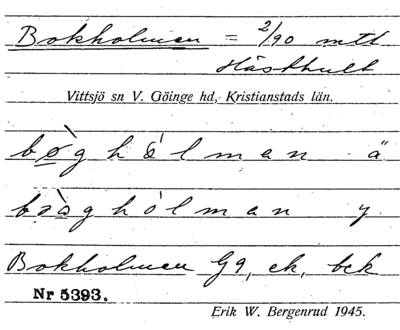 Bokholmen = 2/90 mtl
Hästhult
Vittsjö sn V. Göinge hd, Kristianstads län.
bø̀ghólman ä
bəàghólman y
Bokholmen G9, ek, bck
Nr 5393.
Erik W. Bergenrud 1945.